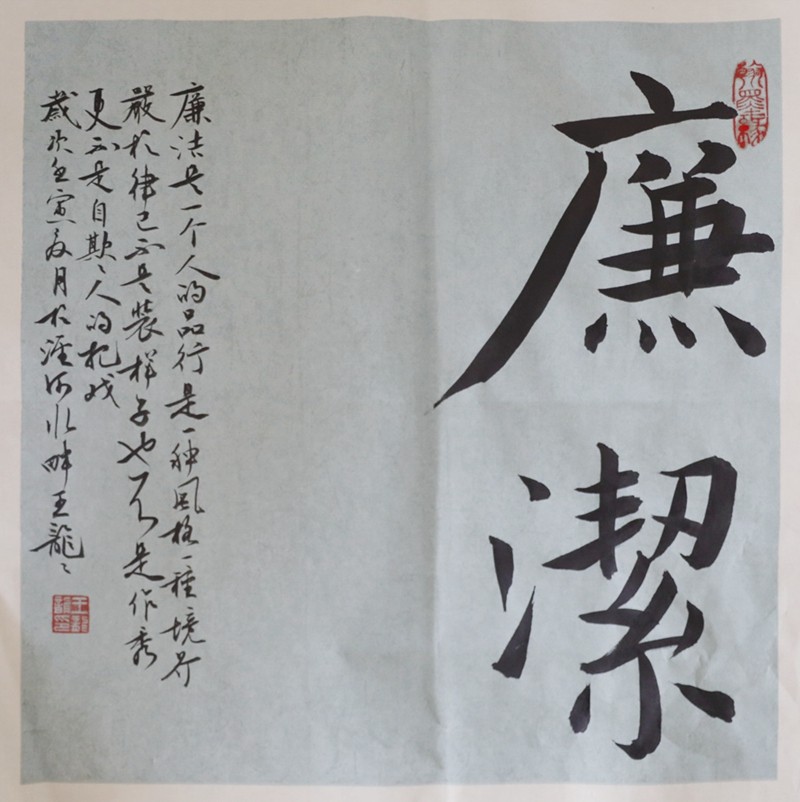 廉潔
廉洁是一个人的品行是一种风格一種境界
嚴於律己不是裝样子也不是作秀
更不是自欺〻人的把戏
歲次壬寅夏月於涇河水畔王龍〻